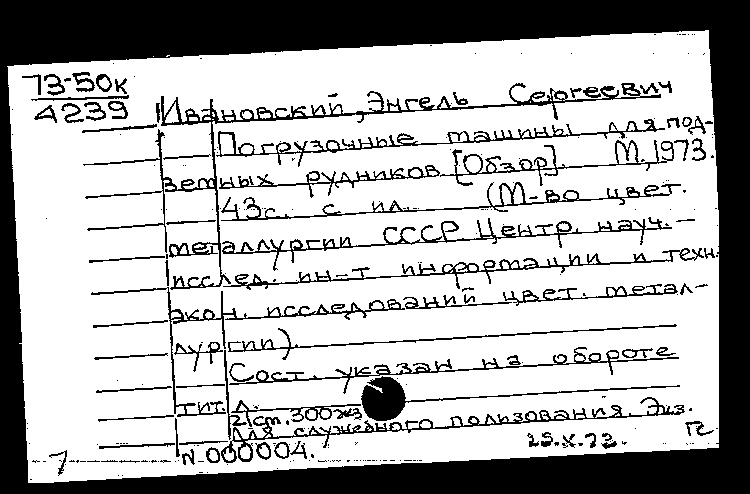 73-50к
4239
Ивановский, Энгель Сергеевич
Погрузочные машины для под-
земных рудников [Обзор]. М, 1973.
43с. с ил. (М-во цвет.
металлургии СССР Центр. науч.-
исслед. ин-т информации и техн.
экон. исследований цвет. метал-
лургии).
Сост. указан на обороте
тит. л.
2/ст. 300экз
Для служебного пользования. Экз.
N 000004.